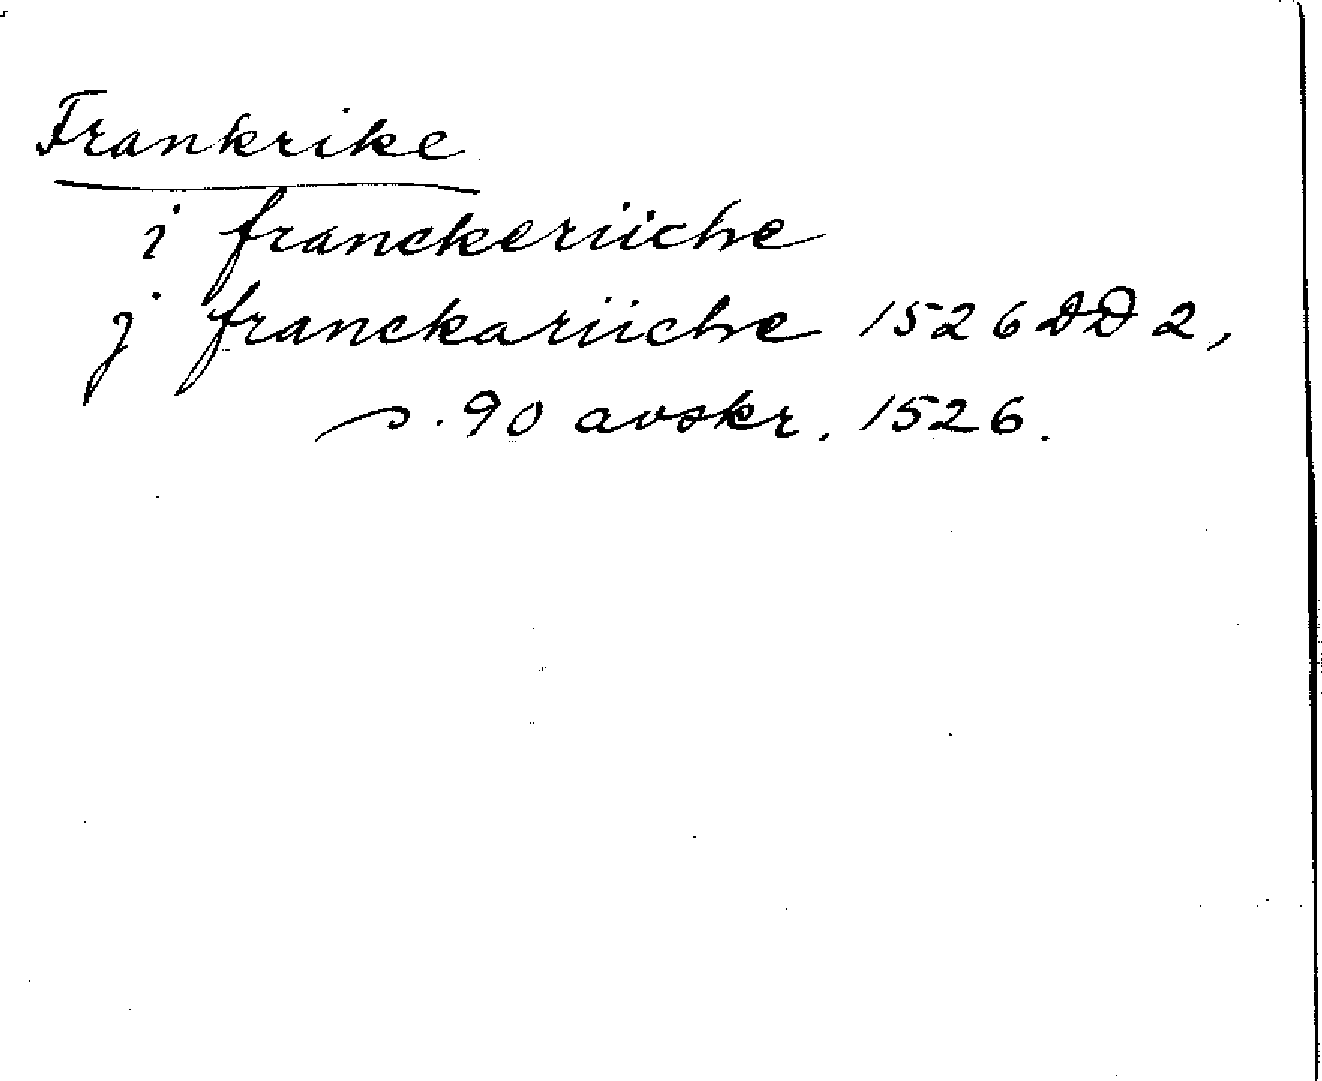 Frankrike
i franckeriiche
j franckariiche 1526 DD 2,
s. 90 avskr. 1526.